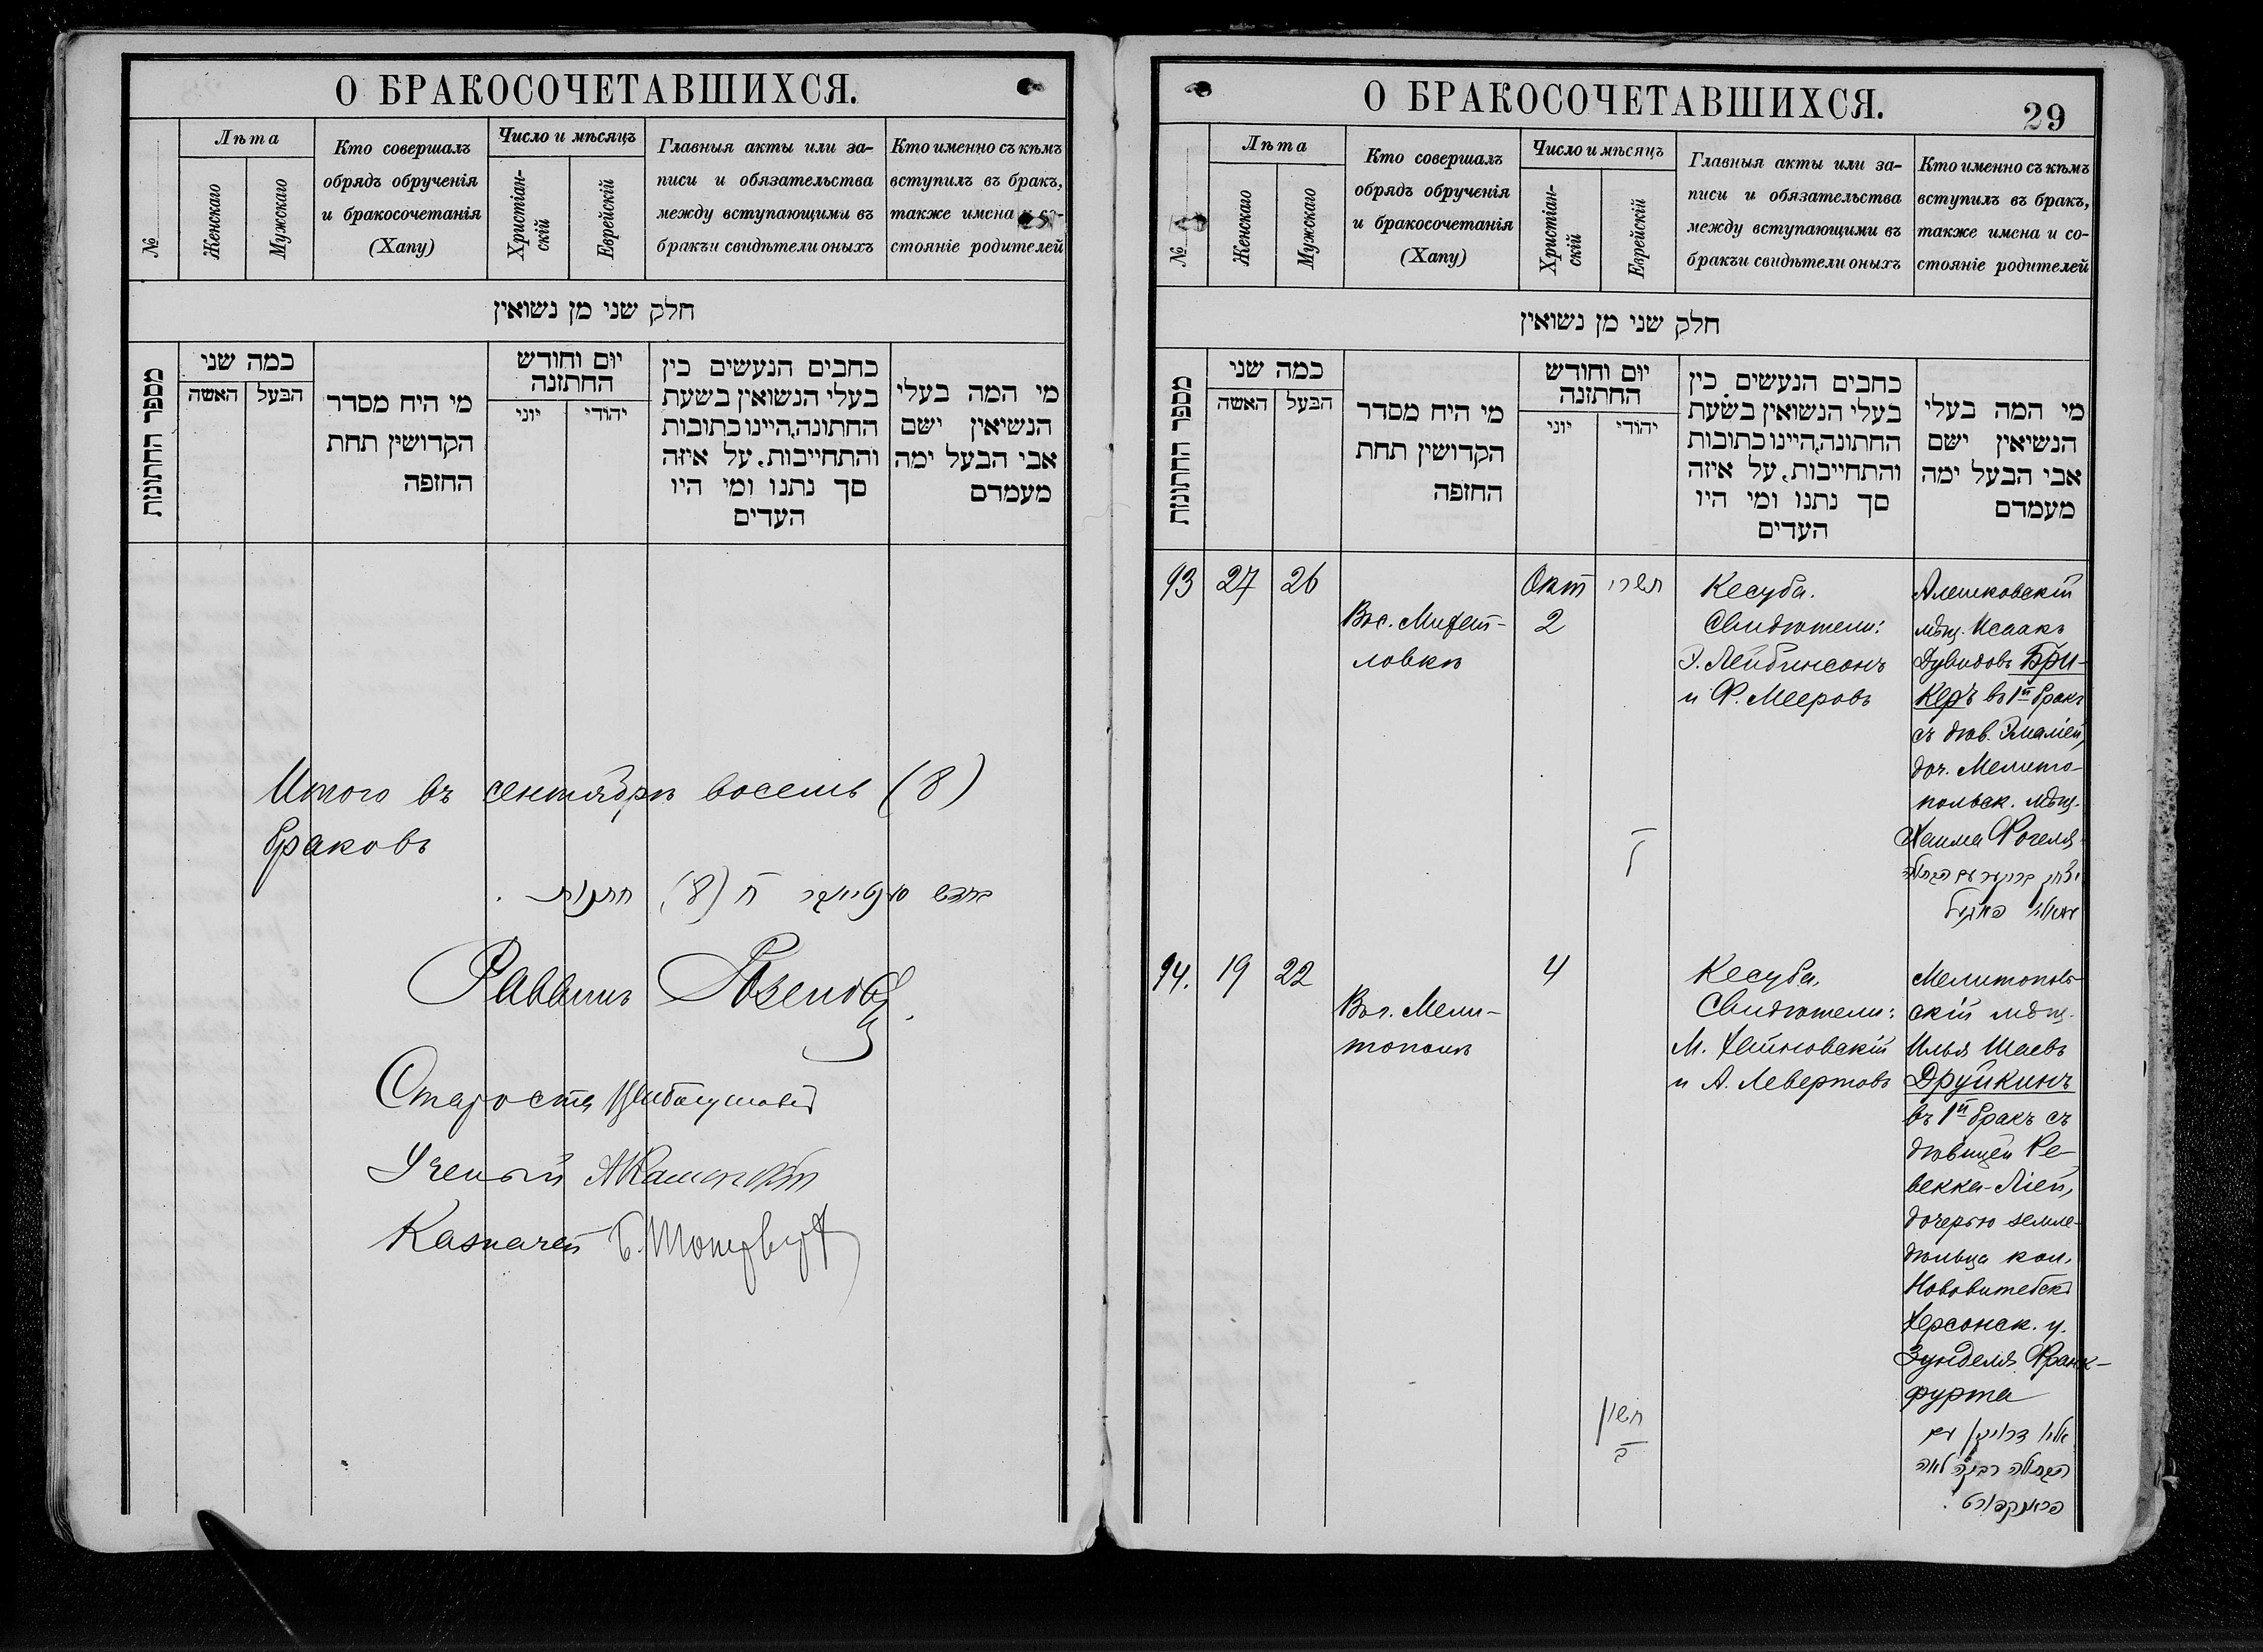 О БРАКОСОЧЕТАВШИХСЯ.
№
Лѣта
Женскаго
Мужскаго
Кто совершалъ
обрядъ обрученія
и бракосочетанія
(Хапу)
Число и мѣсяцъ
Христіан-
скій
Еврейскій
Главныя акты или за-
писи и обязательства
между вступающими въ
бракъ и свидѣтели оныхъ
Кто именно съ кѣмъ
вступилъ въ бракъ,
также имена и со-
стояніе родителей
חלק שני מן נשואין
מספר החתונות
כמה שני
האשה
הבעל
מי היח מסדר
הקדושין תחת
החופה
יום וחודש
החתונה
יוני
יהודי
כחבים הנעשים כין
בעלי הנשואין בשעת
החתונה, היינו כתובות
והתחייבות, על איזה
סך נתנו ומי היו
העדים
מי המה בעלי
הנשיאין ישם
אבי הבעל ימה
מעמדם
Итого въ сентябрѣ восемь (8)
браковъ
ח (8) חתנות.
Раввинъ
Староста
Ученый
Казначей
О БРАКОСОЧЕТАВШИХСЯ.
29
№
Лѣта
Женскаго
Мужскаго
Кто совершалъ
обрядъ обрученія
и бракосочетанія
(Хапу)
Число и мѣсяцъ
Христіан-
скій
Еврейскій
Главныя акты или за-
писи и обязательства
между вступающими въ
бракъ и свидѣтели оныхъ
Кто именно съ кѣмъ
вступилъ въ бракъ,
также имена и со-
стояніе родителей
חלק שני מן נשואין
מספר החתונות
כמה שני
האשה
הבעל
מי היח מסדר
הקדושין תחת
החופה
יום וחודש
החתונה
יוני
יהודי
כחבים הנעשים כין
בעלי הנשואין בשעת
החתונה, היינו כתובות
והתחייבות, על איזה
סך נתנו ומי היו
העדים
מי המה בעלי
הנשיאין ישם
אבי הבעל ימה
מעמדם
93
27
26
Въ с. Михай-
ловкѣ
Окт
2
תשרי
ל
Кесуба.
Свидѣтели:
Э. Лейбинсонъ
и Ф. Мееровъ
Алешковскій
мѣщ. Исаакъ
Дувидовъ Бри-
керъ въ 1й бракъ
съ дѣв.
доч. Мелито-
польск. мѣщ.
Хаима Фогеля
94.
19
22
Въ г. Мели-
тополѣ
4
חשון
ב
Кесуба.
Свидѣтели:
М. Хайновскій
и А. Левертовъ
Мелитополь-
скій мѣщ.
Илья Шаевъ
Друйкинъ
въ 1й бракъ съ
дѣвицей Ре-
векка-Ліей,
дочерью земле-
дѣльца кол.
Нововитебскъ
Херсонск. у.
Зунделя Франк-
фурта
אלי' דרויקין עם
הבתולה רבקה לאה
פראנקפורט.